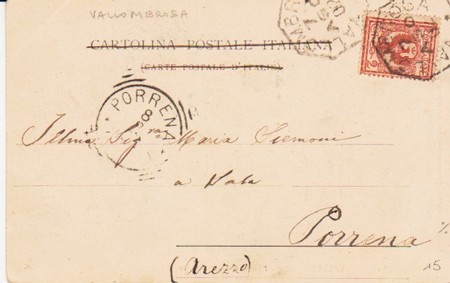 VALLOMBROSA
CARTOLINA POSTALE ITALIANA
(CARTE POSTALE D'ITALIE)
PORRENA
8
Illma Sigra Maria Siemoni
a Vala
Porrena
(Arezzo)
15